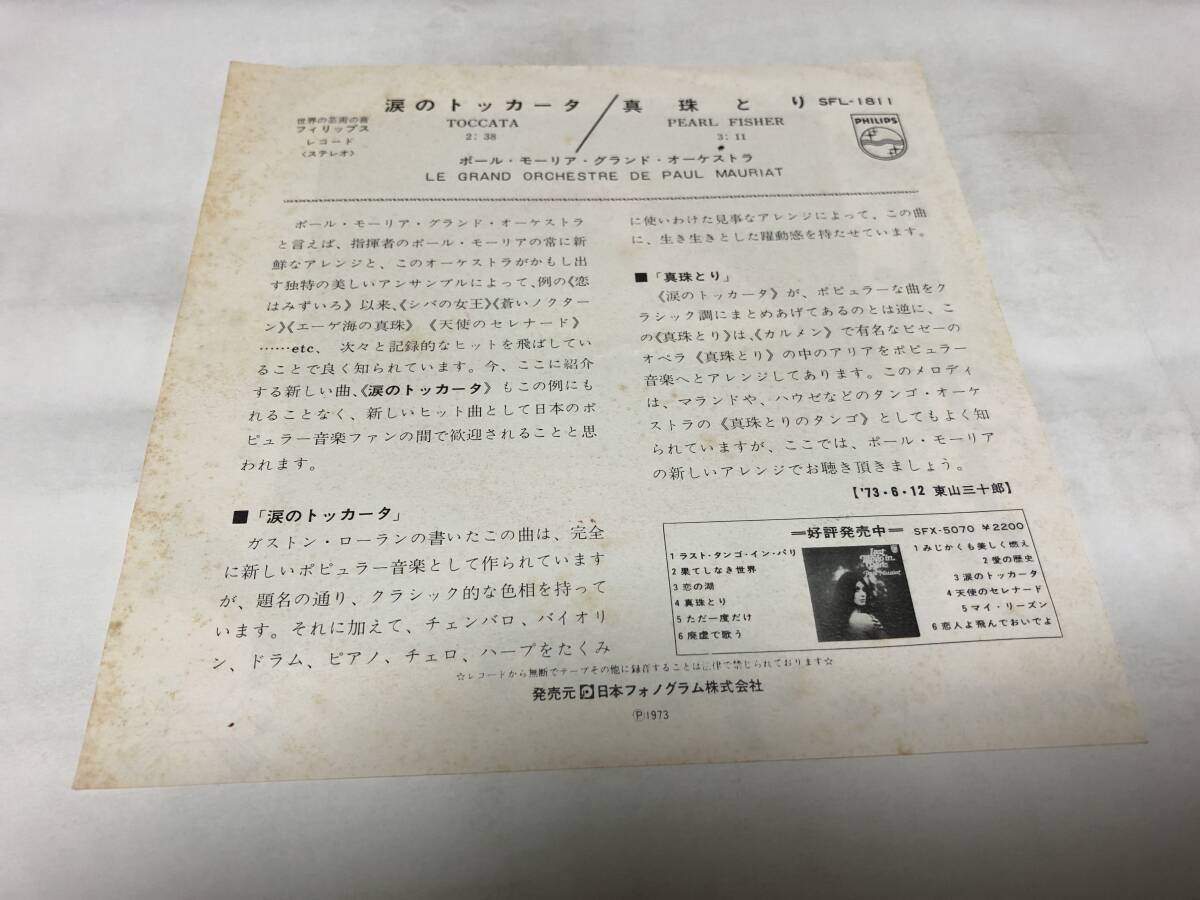 涙のトッカータ/真珠とり SFL-1811
世界の芸術の音
フィリップス
レコード
〈ステレオ〉
TOCCATA
2:38
PEARL FISHER
3:11
PHILIPS
ポール・モーリア・グランド・オーケストラ
LE GRAND ORCHESTRE DE PAUL MAURIAT
ポール・モーリア・グランド・オーケストラ
と言えば、指揮者のポール・モーリアの常に新
鮮なアレンジと、このオーケストラがかもし出
す独特の美しいアンサンブルによって、例の《恋
はみずいろ》以来、《シバの女王》《蒼いノクター
ン》《エーゲ海の真珠》《天使のセレナード》
……etc、次々と記録的なヒットを飛ばしてい
ることで良く知られています。今、ここに紹介
する新しい曲、《涙のトッカータ》もこの例にも
れることなく、新しいヒット曲として日本のポ
ピュラー音楽ファンの間で歓迎されることと思
われます。
■「涙のトッカータ」
ガストン・ローランの書いたこの曲は、完全
に新しいポピュラー音楽として作られています
が、題名の通り、クラシック的な色相を持って
います。それに加えて、チェンバロ、バイオリ
ン、ドラム、ピアノ、チェロ、ハープをたくみ
に使いわけた見事なアレンジによって、この曲
に、生き生きとした躍動感を持たせています。
■「真珠とり」
《涙のトッカータ》が、ポピュラーな曲をク
ラシック調にまとめあげてあるのとは逆に、こ
の《真珠とり》は、《カルメン》で有名なビゼーの
オペラ《真珠とり》の中のアリアをポピュラー
音楽へとアレンジしてあります。このメロディ
は、マランドや、ハウゼなどのタンゴ・オーケ
ストラの《真珠とりのタンゴ》としてもよく知
られていますが、ここでは、ポール・モーリア
の新しいアレンジでお聴き頂きましょう。
【'73・6・12 東山三十郎】
=好評発売中= SFX-5070 ¥2200
1 ラスト・タンゴ・イン・パリ
2 果てしなき世界
3 恋の湖
4 真珠とり
5 ただ一度だけ
6 廃虚で歌う
1 みじかくも美しく燃え
2 愛の歴史
3 涙のトッカータ
4 天使のセレナード
5 マイ・リーズン
6 恋人よ飛んでおいでよ
☆レコードから無断でテープその他に録音することは法律で禁じられております☆
発売元 日本フォノグラム株式会社
Ⓟ1973